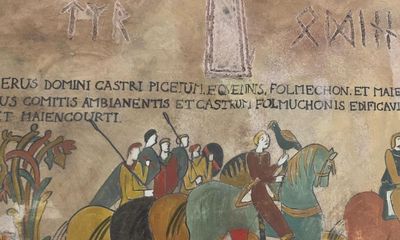 ᛟᛞᛁᚾᚾ
ERUS DOMINI CASTRI PICETUM. EQUENNIS, FOLMECHON. ET MAIE
US COMITIS AMBIANENTIS ET CASTRUM FOLMUCHONIS EDIFICAV
ET MAIENCOURTI.